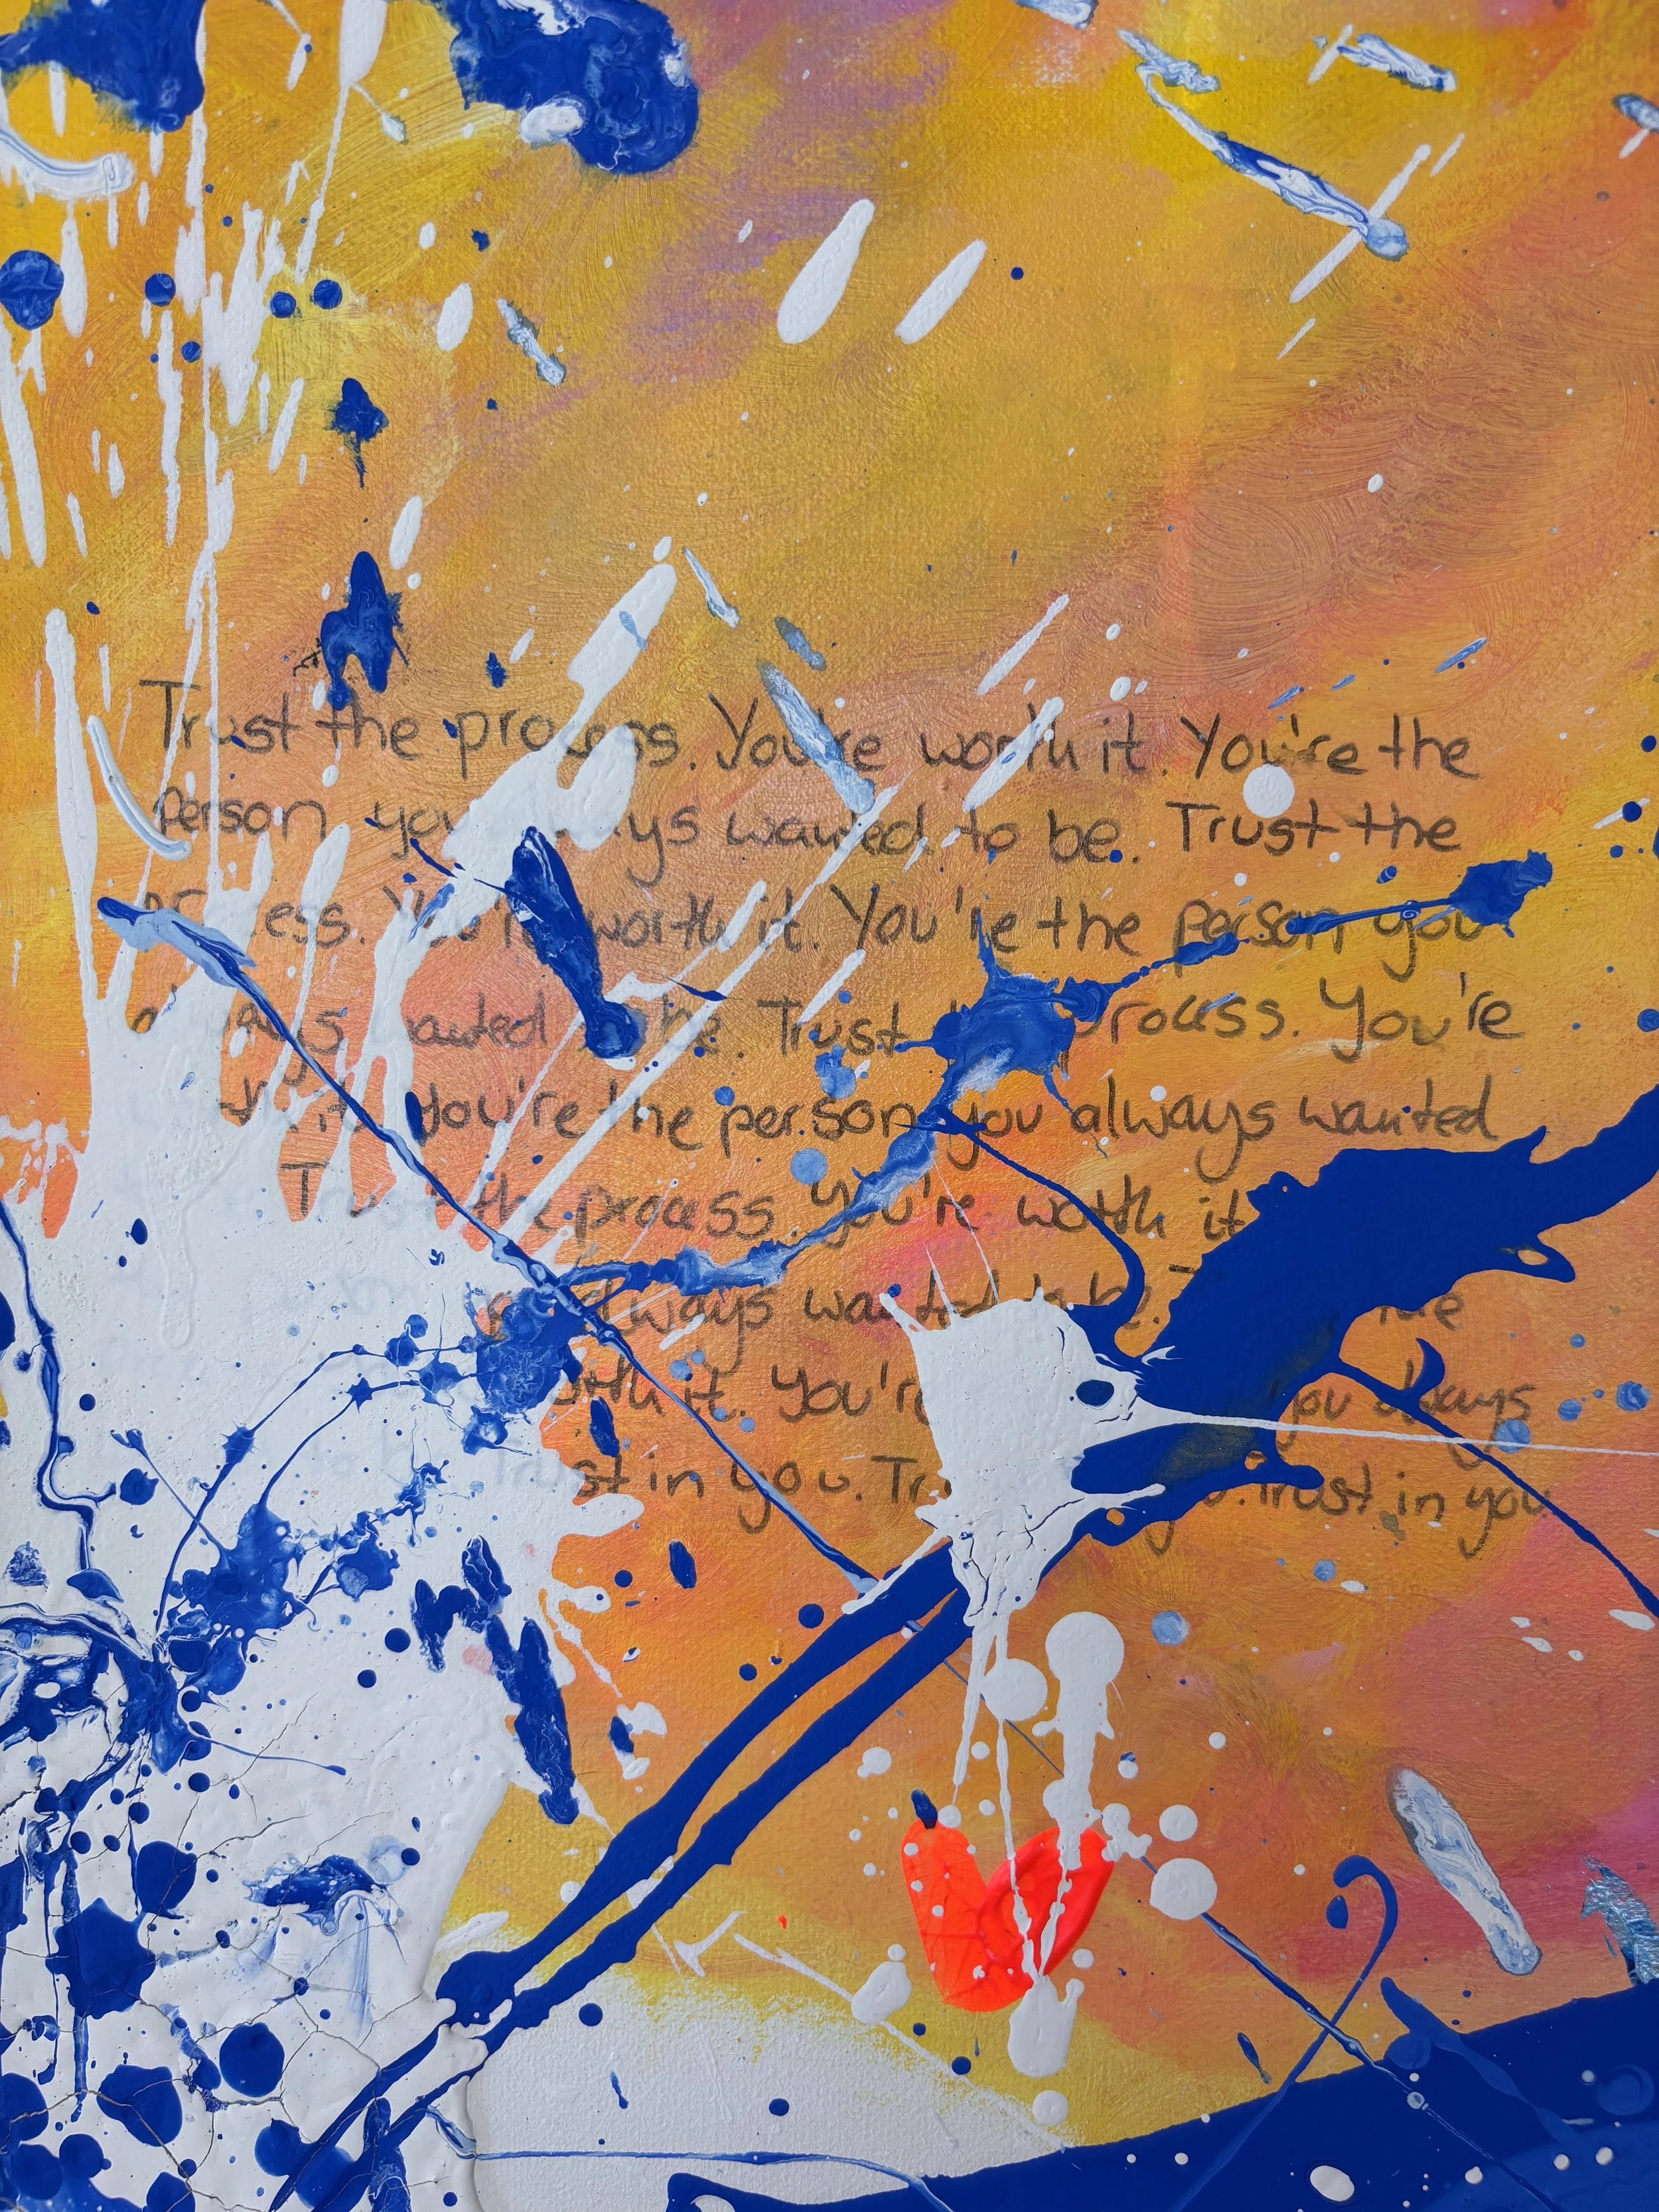 Trust the process. You're worth it. You're the
Person you always wanted to be. Trust the
process. You're worth it. You're the person you
always wanted to be. Trust process. You're
it. You're the person you always wanted
Trust the process. You're worth it
always wanted to be.
worth it. You're you always
Trust in you. Trust in you